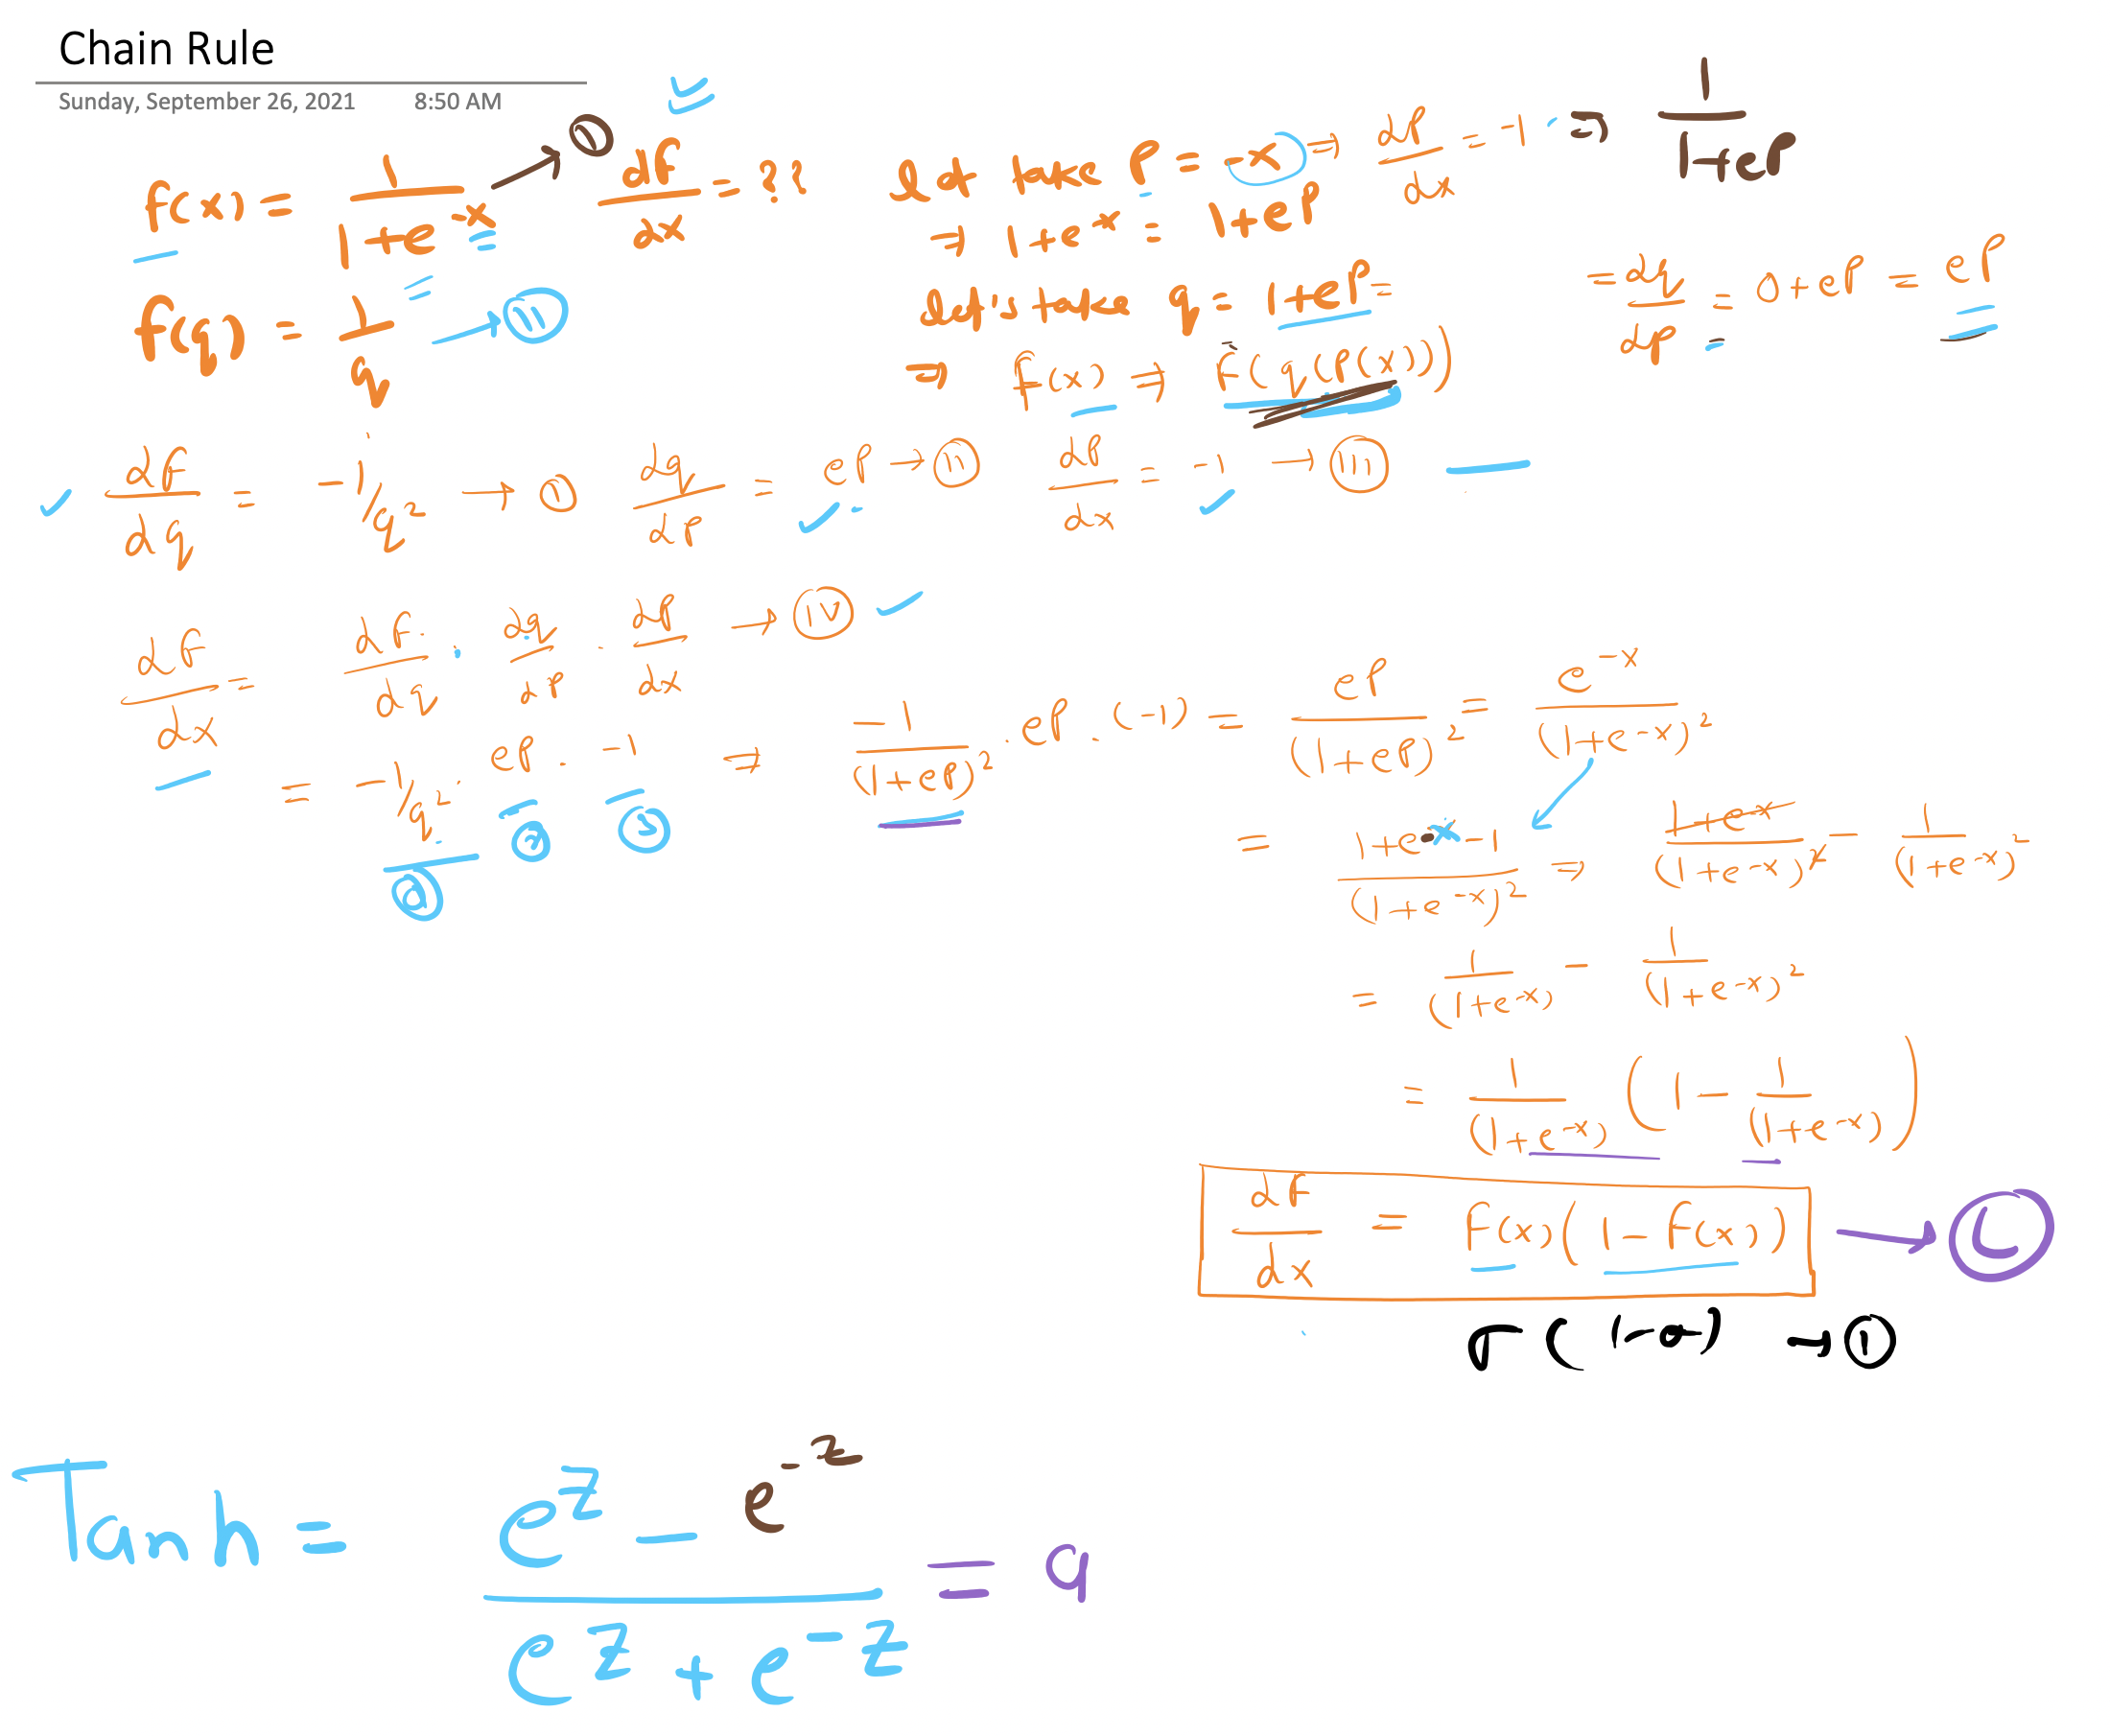 Chain Rule
Sunday, September 26, 2021 8:50 AM
f(x) = 1/(1+e^-x) → (1) df/dx = ?? Let take P = -x ⇒ dP/dx = -1 ⇒ 1/(1+e^P)
⇒ 1+e^-x = 1+e^P
f(q) = 1/q → (11) Let's take q = 1+e^P = = dq/dp = 0+e^P = e^P
⇒ f(x) ⇒ f(q(P(x)))
df/dq = -1/q^2 → (1) dq/dP = e^P → (11) dP/dx = -1 → (111)
df/dx = df/dq · dq/dP · dP/dx → (IV)
= -1/q^2 · e^P · -1 ⇒ -1/(1+e^P)^2 · e^P · (-1) = e^P/(1+e^P)^2 = e^-x/(1+e^-x)^2
= (1+e^-x-1)/(1+e^-x)^2 ⇒ (1+e^-x)/(1+e^-x)^2 - 1/(1+e^-x)^2
= 1/(1+e^-x) - 1/(1+e^-x)^2
= 1/(1+e^-x) (1 - 1/(1+e^-x))
df/dx = f(x)(1-f(x))
σ(1-σ) → (1)
Tanh = (e^z - e^-z)/(e^z + e^-z) = a